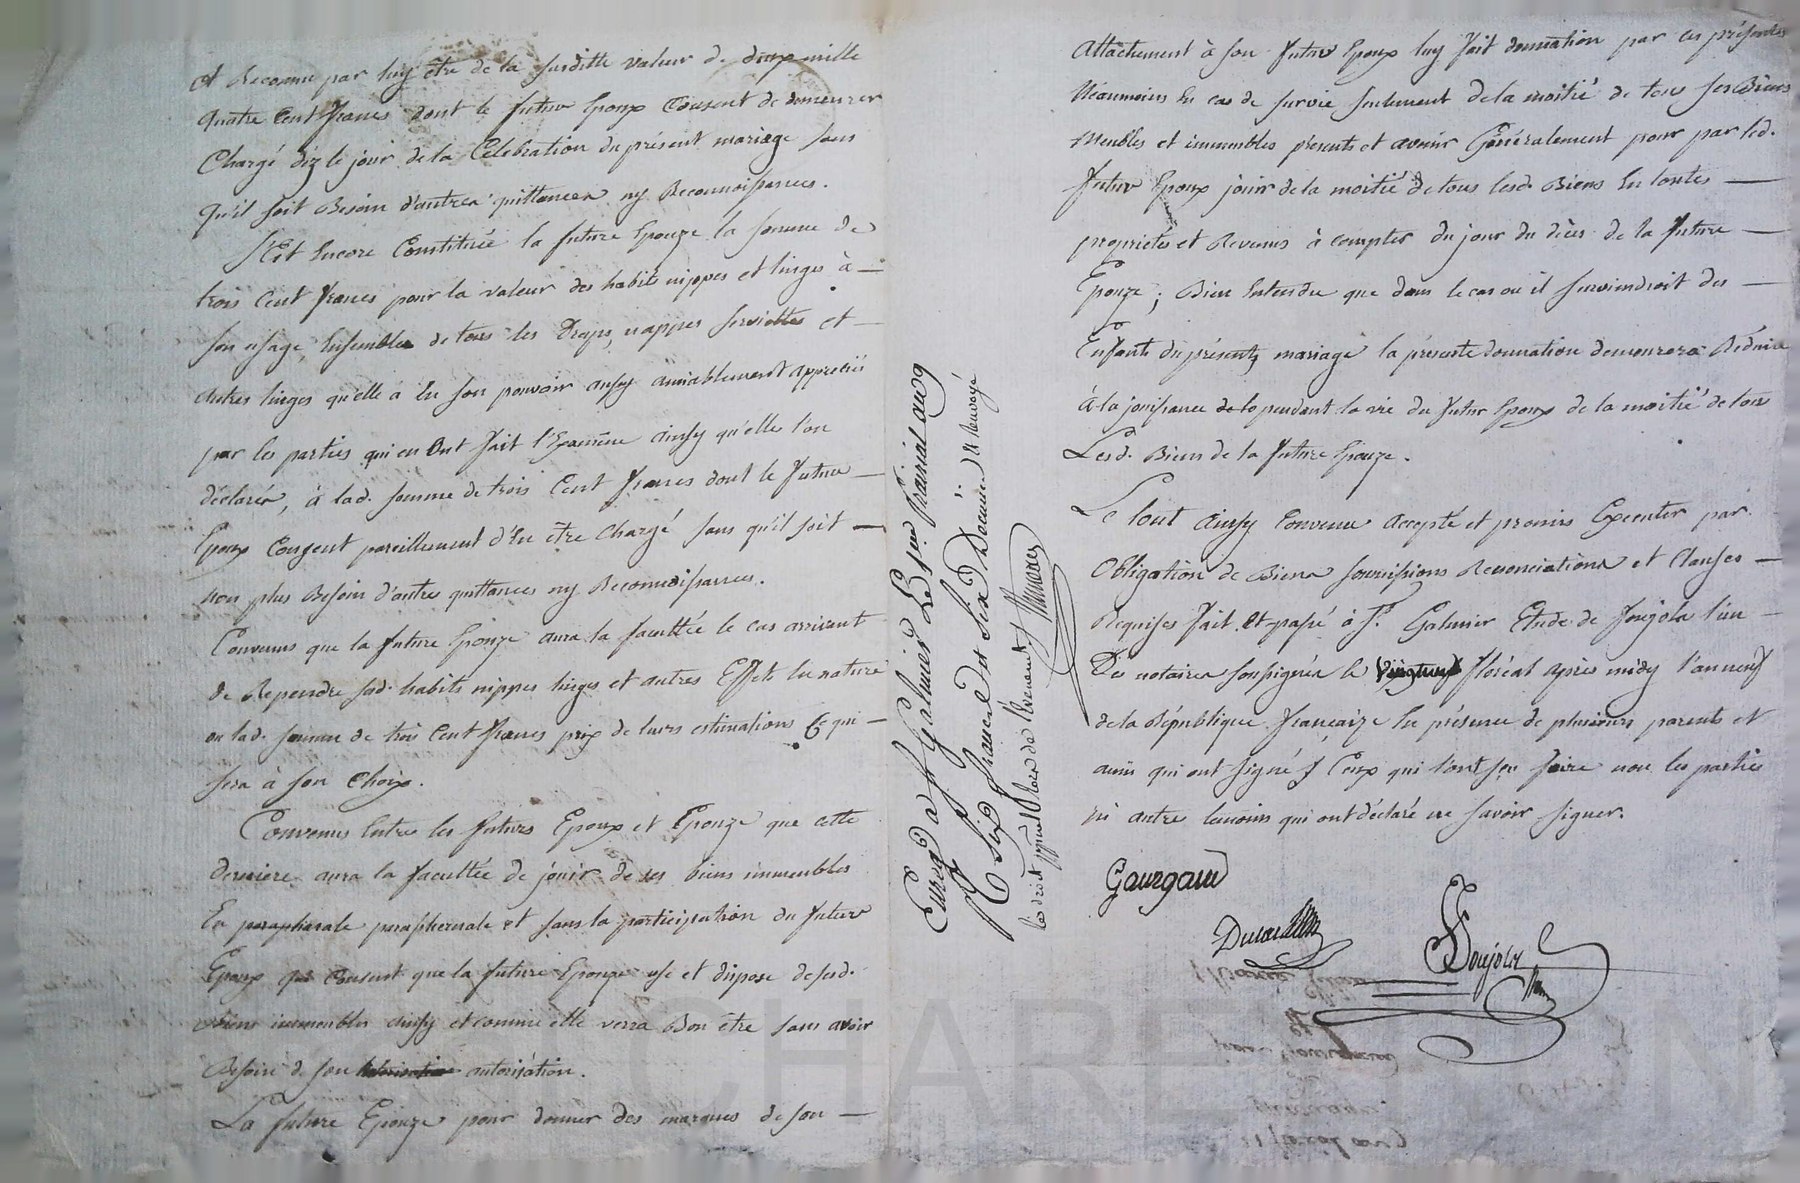 et Reconnu par luy être de la susditte valeur de deux mille
quatre Cent francs dont le futur Epoux Consent de demeurer
Chargé diz le jour de la Célébration du présent mariage sans
qu'il soit Besoin d'autres quittances ny Reconnoissances.
S'Est Encore Constituée la future Epouze la somme de
trois Cent francs pour la valeur des habits nippes et linges à
son usage, Ensembles de tous les Draps, nappes serviettes et
autres linges qu'elle a En son pouvoir aussy amiablement appretiés
par les parties qui en Ont fait l'Examene ainsy qu'elle l'on
déclarés, à lad. somme de trois Cent francs dont le futur
Epoux Consent pareillement d'En être Chargé sans qu'il soit
non plus Besoin d'autres quittances ny Reconnoissances.
Convenus que la future Epouze aura la facultée le cas arrivant
de Reprendre sesd. habits nippes linges et autres Effets En nature
ou lad. somme de trois Cent francs prix de leurs estimations Ce qui
sera à son Choix.
Convenus Entre les futurs Epoux et Epouze que cette
derniere aura la facultée de jouir de ses biens immeubles
En paraphernale et sans la participation du futur
Epoux qui Consent que la future Epouze use et dispose desesd.
Biens immeubles ainsy et comme elle verra Bon être sans avoir
Besoin de son autorisation.
La future Epouze pour donner des marques de son
Enreg à St Galmier Le 3 jeu Prairial an 9
R six francs et six Décimes
les droits
attachement à son futur Epoux luy fait donnation par ces présentes
Néanmoins En cas de survie seulement de la moitié de tous ses Biens
Meubles et immeubles présents et avenir Généralement pour par led.
futur Epoux jouir de la moitié de tous lesd. Biens En toutes
proprietés et Revenus à compter du jour du décès de la future
Epouze; Bien Entendu que dans le cas ou il surviendroit des
Enfants du présents mariage la présente donnation demeurera Réduite
à la jouissance pendant la vie du futur Epoux de la moitié de tous
Lesd. Biens de la future Epouze.
Le tout ainsy Convenu accepté et promis Executer par
Obligation de Biens soumissions Renonciations et Clauses
Requises fait et passé à St Galmier Etude de Soujola l'un
Des notaires soussignés le vingtun floréal après midy l'an neuf
de la République française En présence de plusieurs parents et
amis qui ont signé Ceux qui l'ont sçu faire non les parties
ni autre temoins qui ont déclaré ne savoir signer.
Gaurgaud
Soujola
CHARE
N